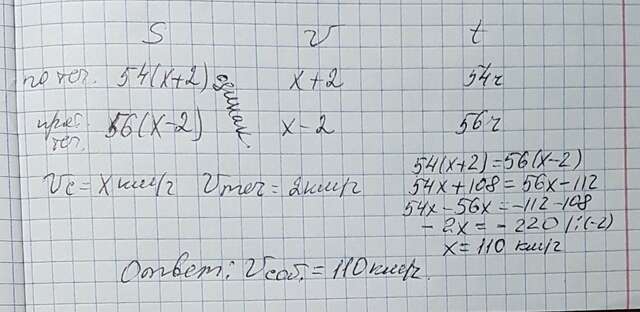 S V t
по теч. 54(x+2) x+2 54ч
прот. теч. 56(x-2) x-2 56ч
одинак.
Vc = x км/ч Vтеч = 2км/ч
54(x+2) = 56(x-2)
54x+108 = 56x-112
54x-56x = -112-108
-2x = -220 |:(-2)
x = 110 км/ч
Ответ: Vсоб. = 110 км/ч.